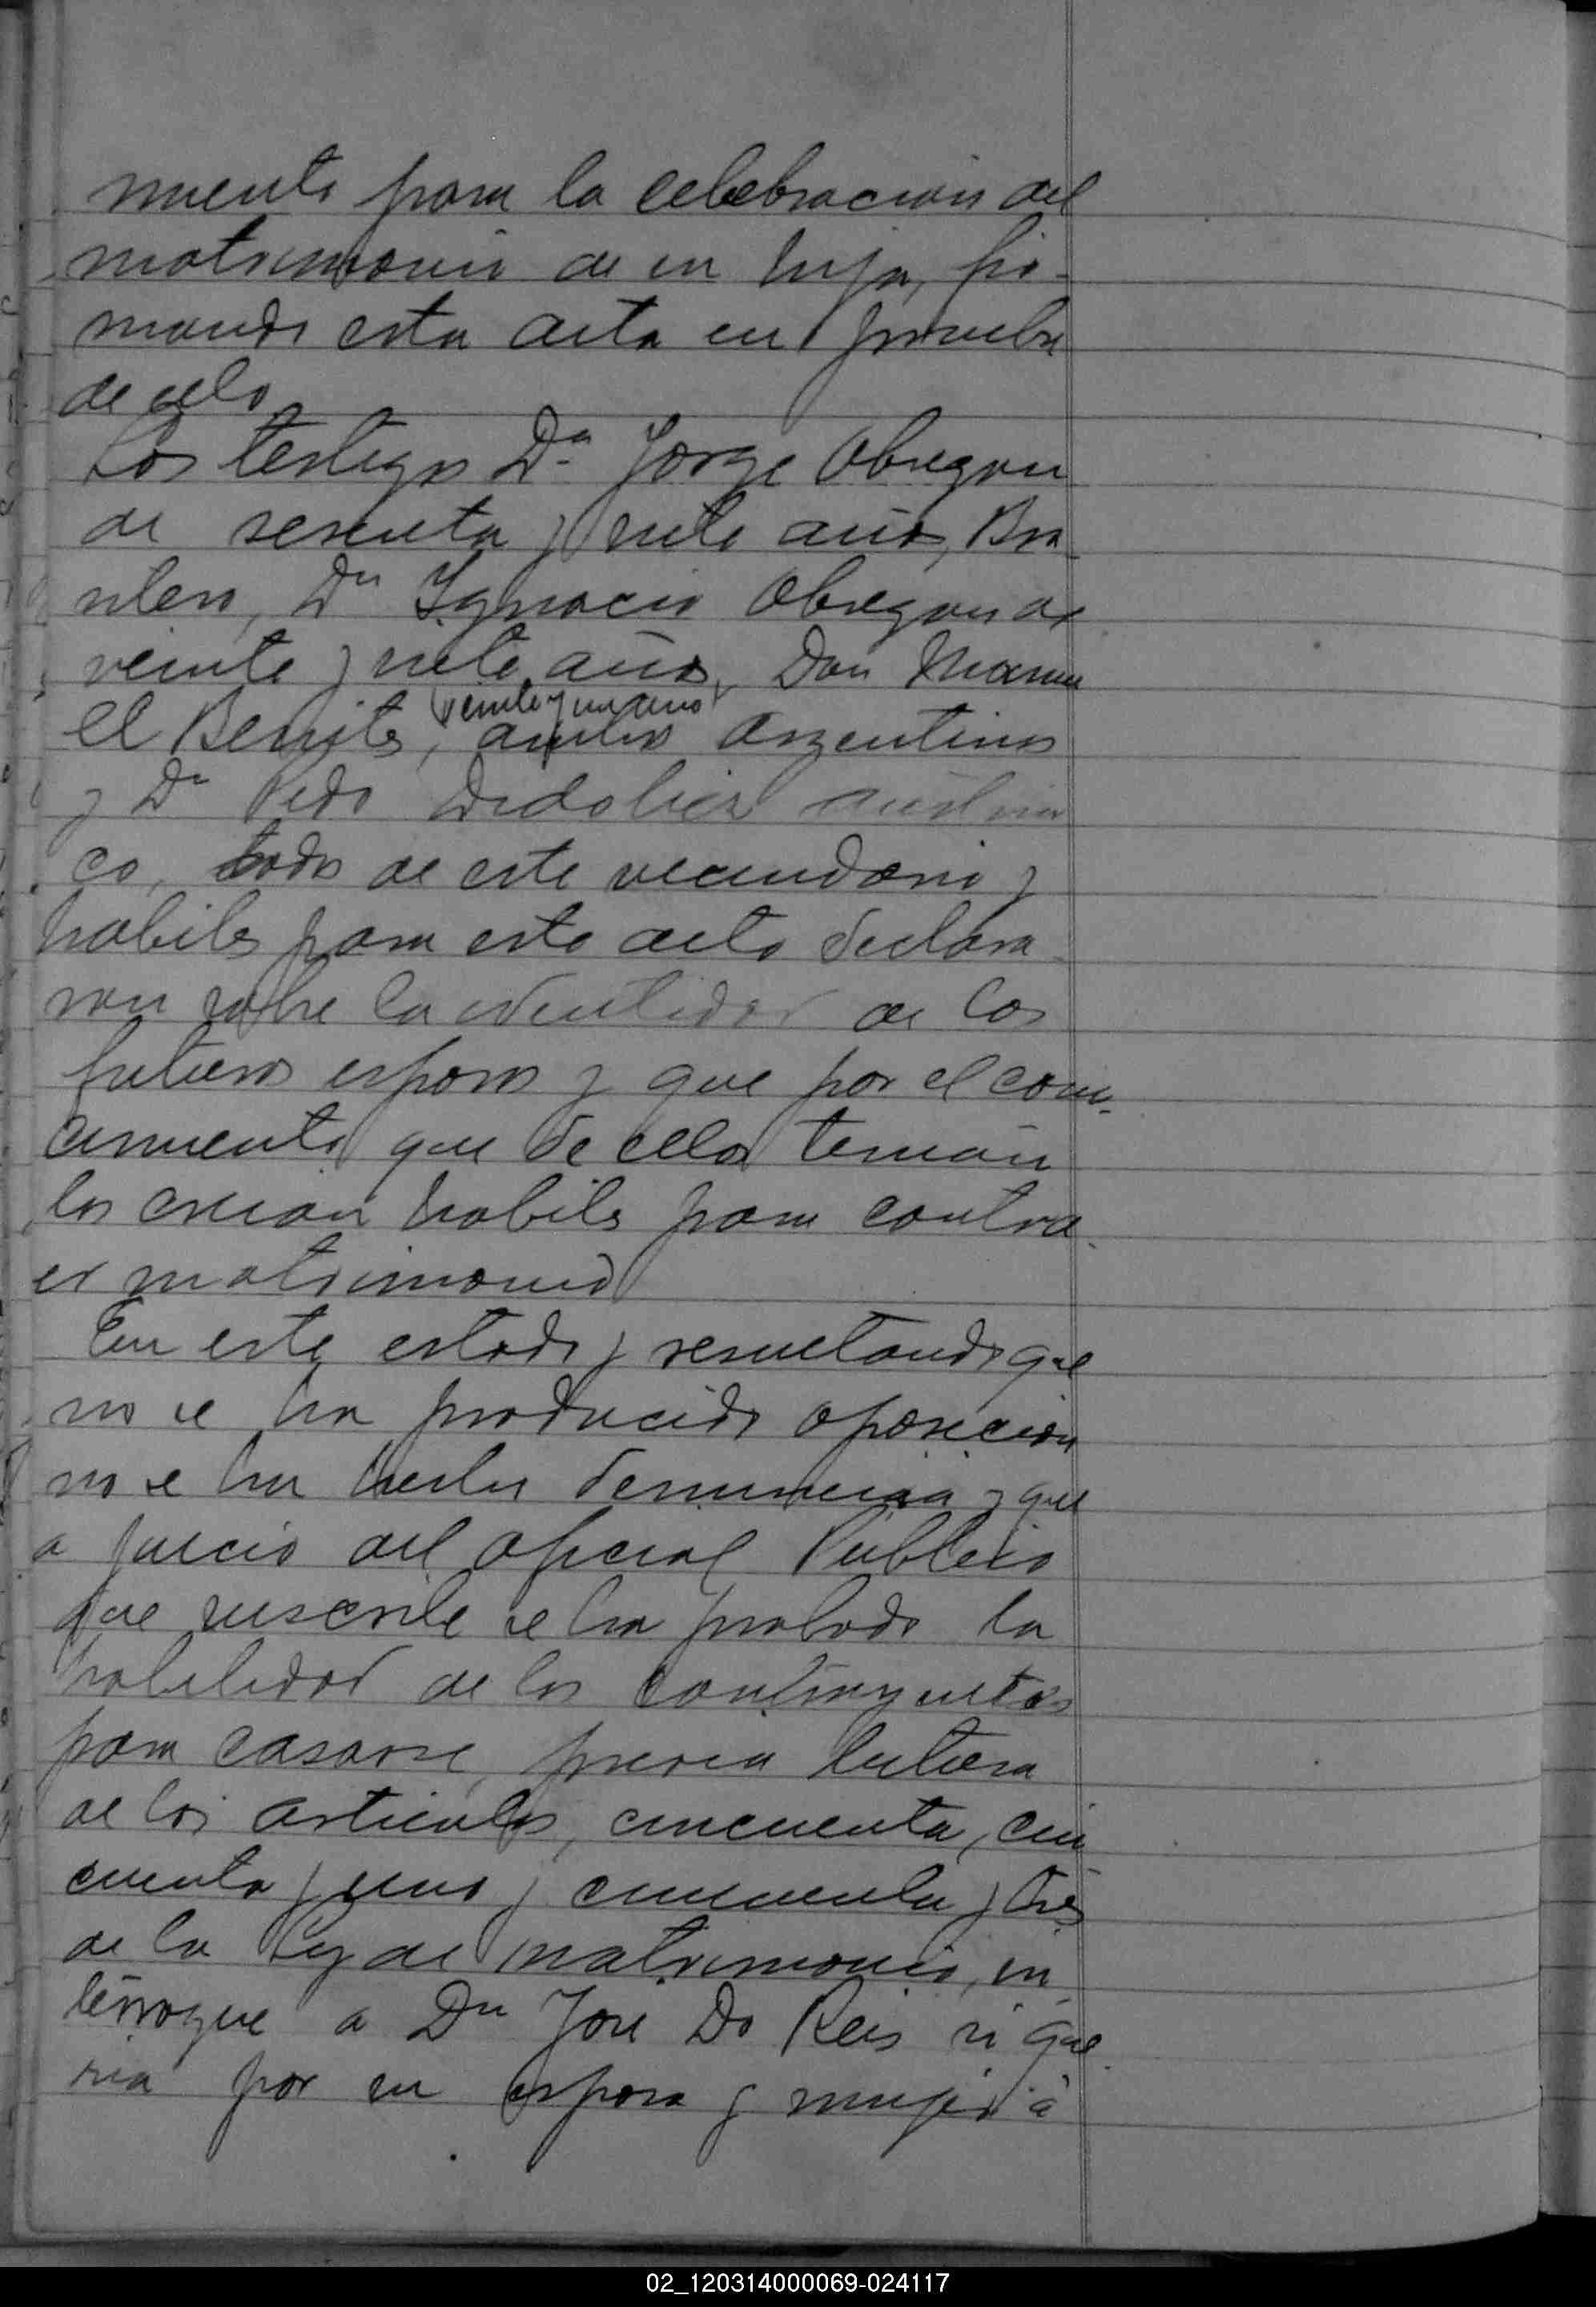 miento para la celebracion del
matrimonio de su hija, fir-
mando esta acta en prueba
de ello
Los testigos Dn Jorge Obregon
de sesenta y siete años, Bra-
silero, Dn Ignacio Obregon de
veinte y siete años, Don Manu
el Benites, ambos argentinos
veinte y un años
y Dn Pedro austria
co, todos de este vecindario y
habiles para este acto declara-
ron sobre la identidad de los
futuros esposos y que por el cono-
cimiento que de ellos tenian
los creian habiles para contra-
er matrimonio
En este estado y resultando que
no se ha producido oposicion
no se ha hecho denuncia y que
a juicio del oficial Publico
que suscribe se ha probado la
habilidad de los contrayentes
para casarse, previa lectura
de los articulos, cincuenta, cin
cuenta y uno y cincuenta y tres
de la Ley de matrimonio, in-
terrogue a Dn Jose Do Reis si que-
ria por su esposa y mujer à
02_120314000069-024117